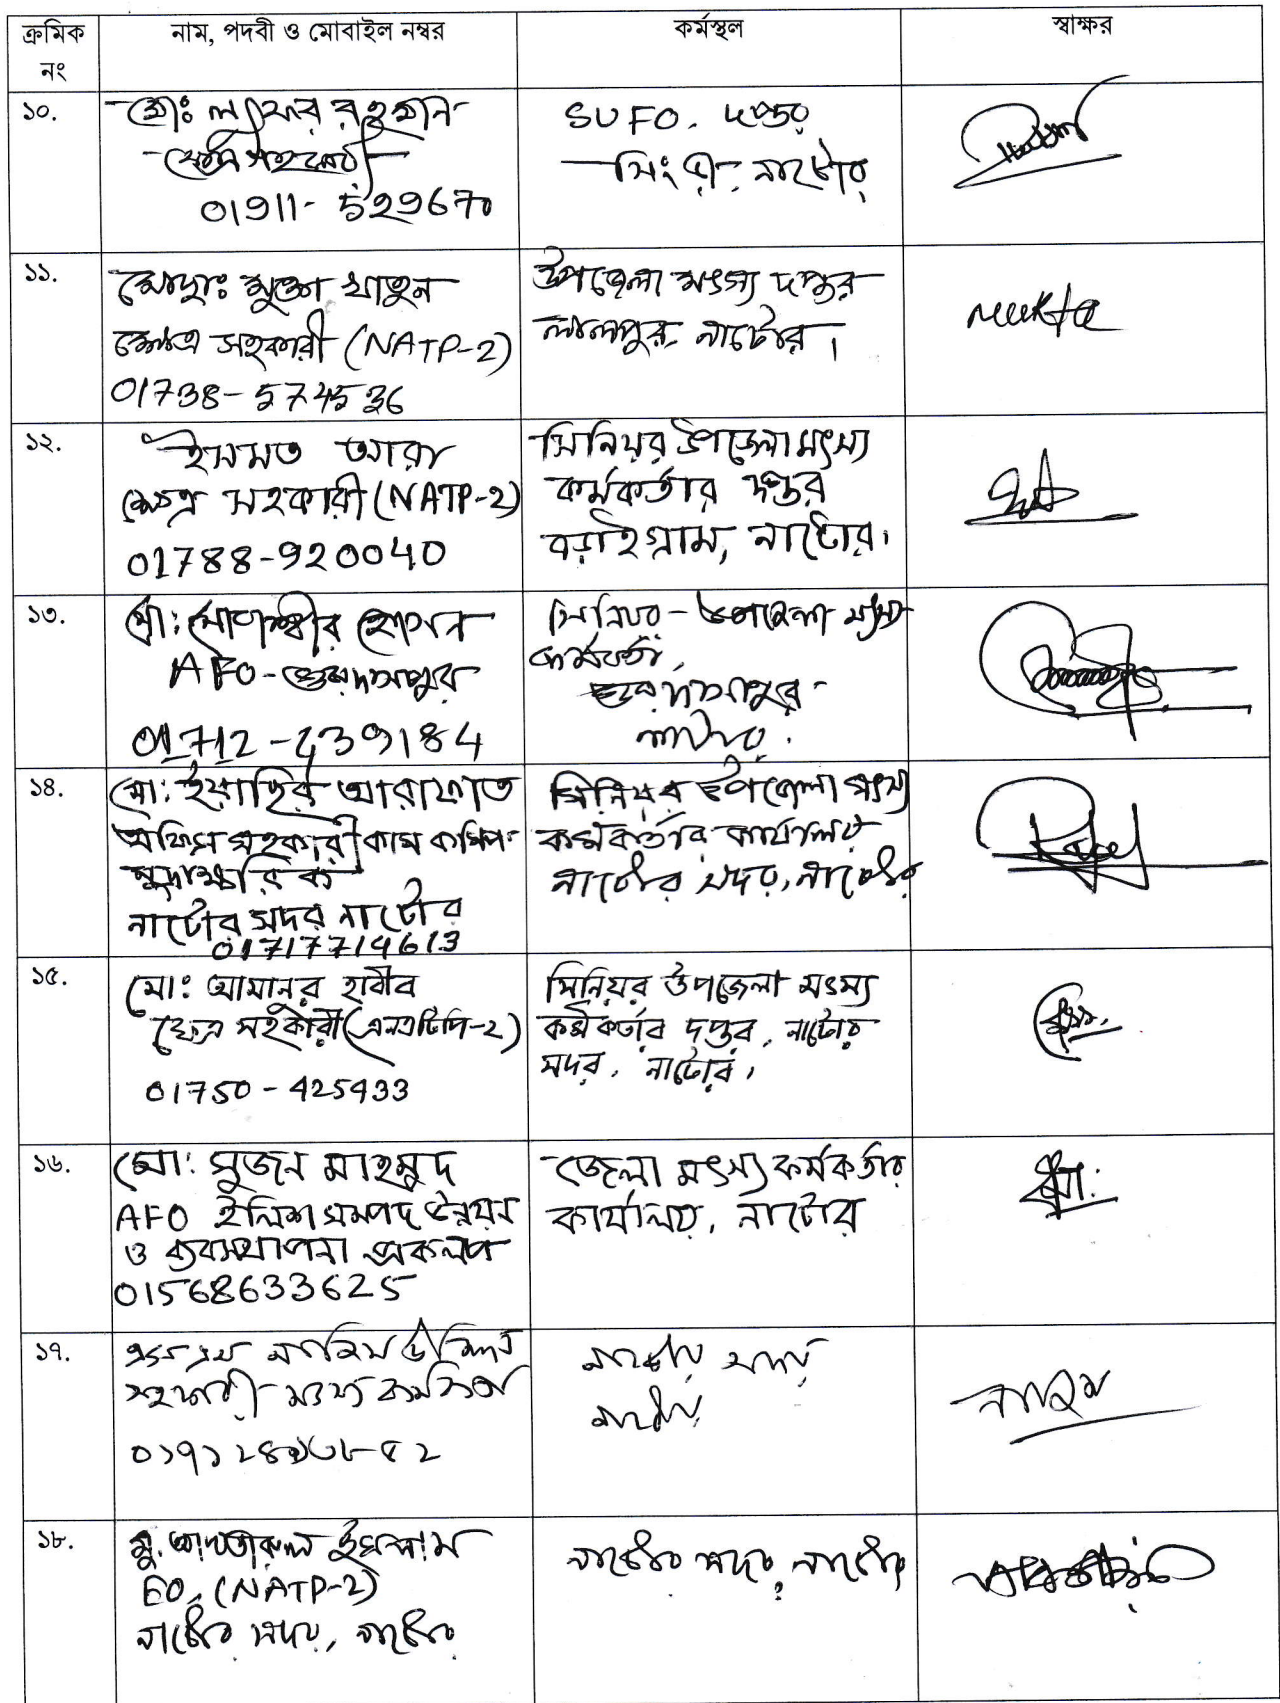 ক্রমিক নং	নাম, পদবী ও মোবাইল নম্বর	কর্মস্থল	স্বাক্ষর
১০.
মোঃ রহমান
ক্ষেত্র সহকারী
01911-529670
SUFO. দপ্তর
সিংড়া, নাটোর
১১.
মোছাঃ মুক্তা খাতুন
ক্ষেত্র সহকারী (NATP-2)
01738-574536
উপজেলা মৎস্য দপ্তর
লালপুর, নাটোর।
Mukta
১২.
ইসমত আরা
ক্ষেত্র সহকারী (NATP-2)
01788-920040
সিনিয়র উপজেলা মৎস্য
কর্মকর্তার দপ্তর
বড়াইগ্রাম, নাটোর।
১৩.
মো: হোসেন
AFO-গুরুদাসপুর
01712-239184
সিনিয়র-উপজেলা মৎস্য
কর্মকর্তা,
গুরুদাসপুর
নাটোর.
১৪.
মো: ইয়াছির আরাফাত
অফিস সহকারী কাম কম্পি:
মুদ্রাক্ষরিক
নাটোর সদর নাটোর
01717714613
সিনিয়র উপজেলা মৎস্য
কর্মকর্তার কার্যালয়
নাটোর সদর, নাটোর
১৫.
মো: আমানুর হাবীব
ক্ষেত্র সহকারী (এনএটিপি-২)
01750-425433
সিনিয়র উপজেলা মৎস্য
কর্মকর্তার দপ্তর, নাটোর
সদর, নাটোর,
১৬.
মো: সুজন মাহমুদ
AFO ইলিশ সম্পদ উন্নয়ন
ও ব্যবস্থাপনা প্রকল্প
01568633625
জেলা মৎস্য কর্মকর্তার
কার্যালয়, নাটোর
১৭.
সহকারী মৎস্য কর্মকর্তা
নাটোর সদর
নাটোর
১৮.
মু. ইসলাম
EO, (NATP-2)
নাটোর সদর, নাটোর
নাটোর সদর, নাটোর